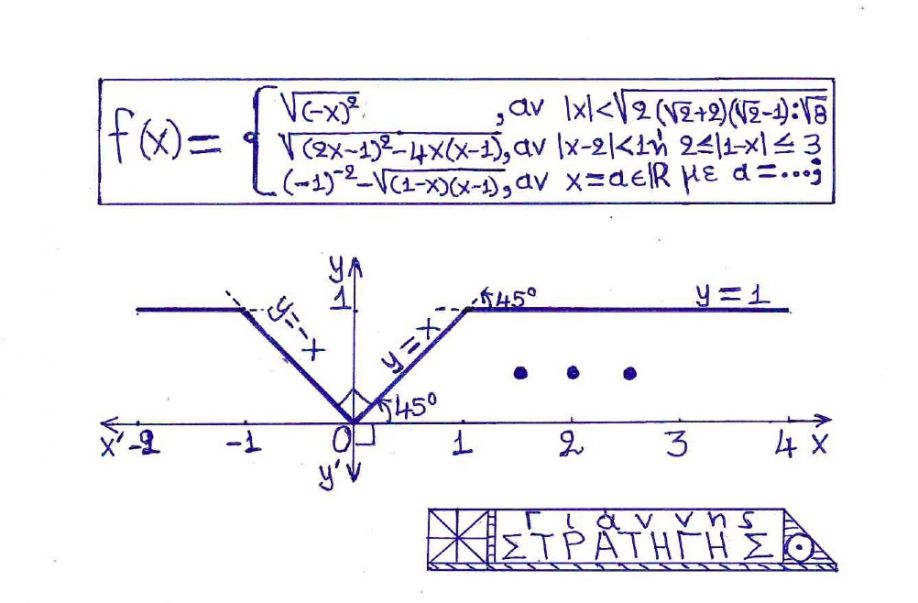 f(x) =
√(-x)² , αν |x|<√2(√2+2)(√2-1):√8
√(2x-1)²-4x(x-1), αν |x-2|<1 ή 2≤|1-x|≤3
(-1)⁻²-√(1-x)(x-1), αν x=α∈ℝ με α=...;
y
1
45°
y=1
y=-x
y=x
45°
x' -2 -1 0 1 2 3 4 x
y'
Γιάννης
ΣΤΡΑΤΗΓΗΣ